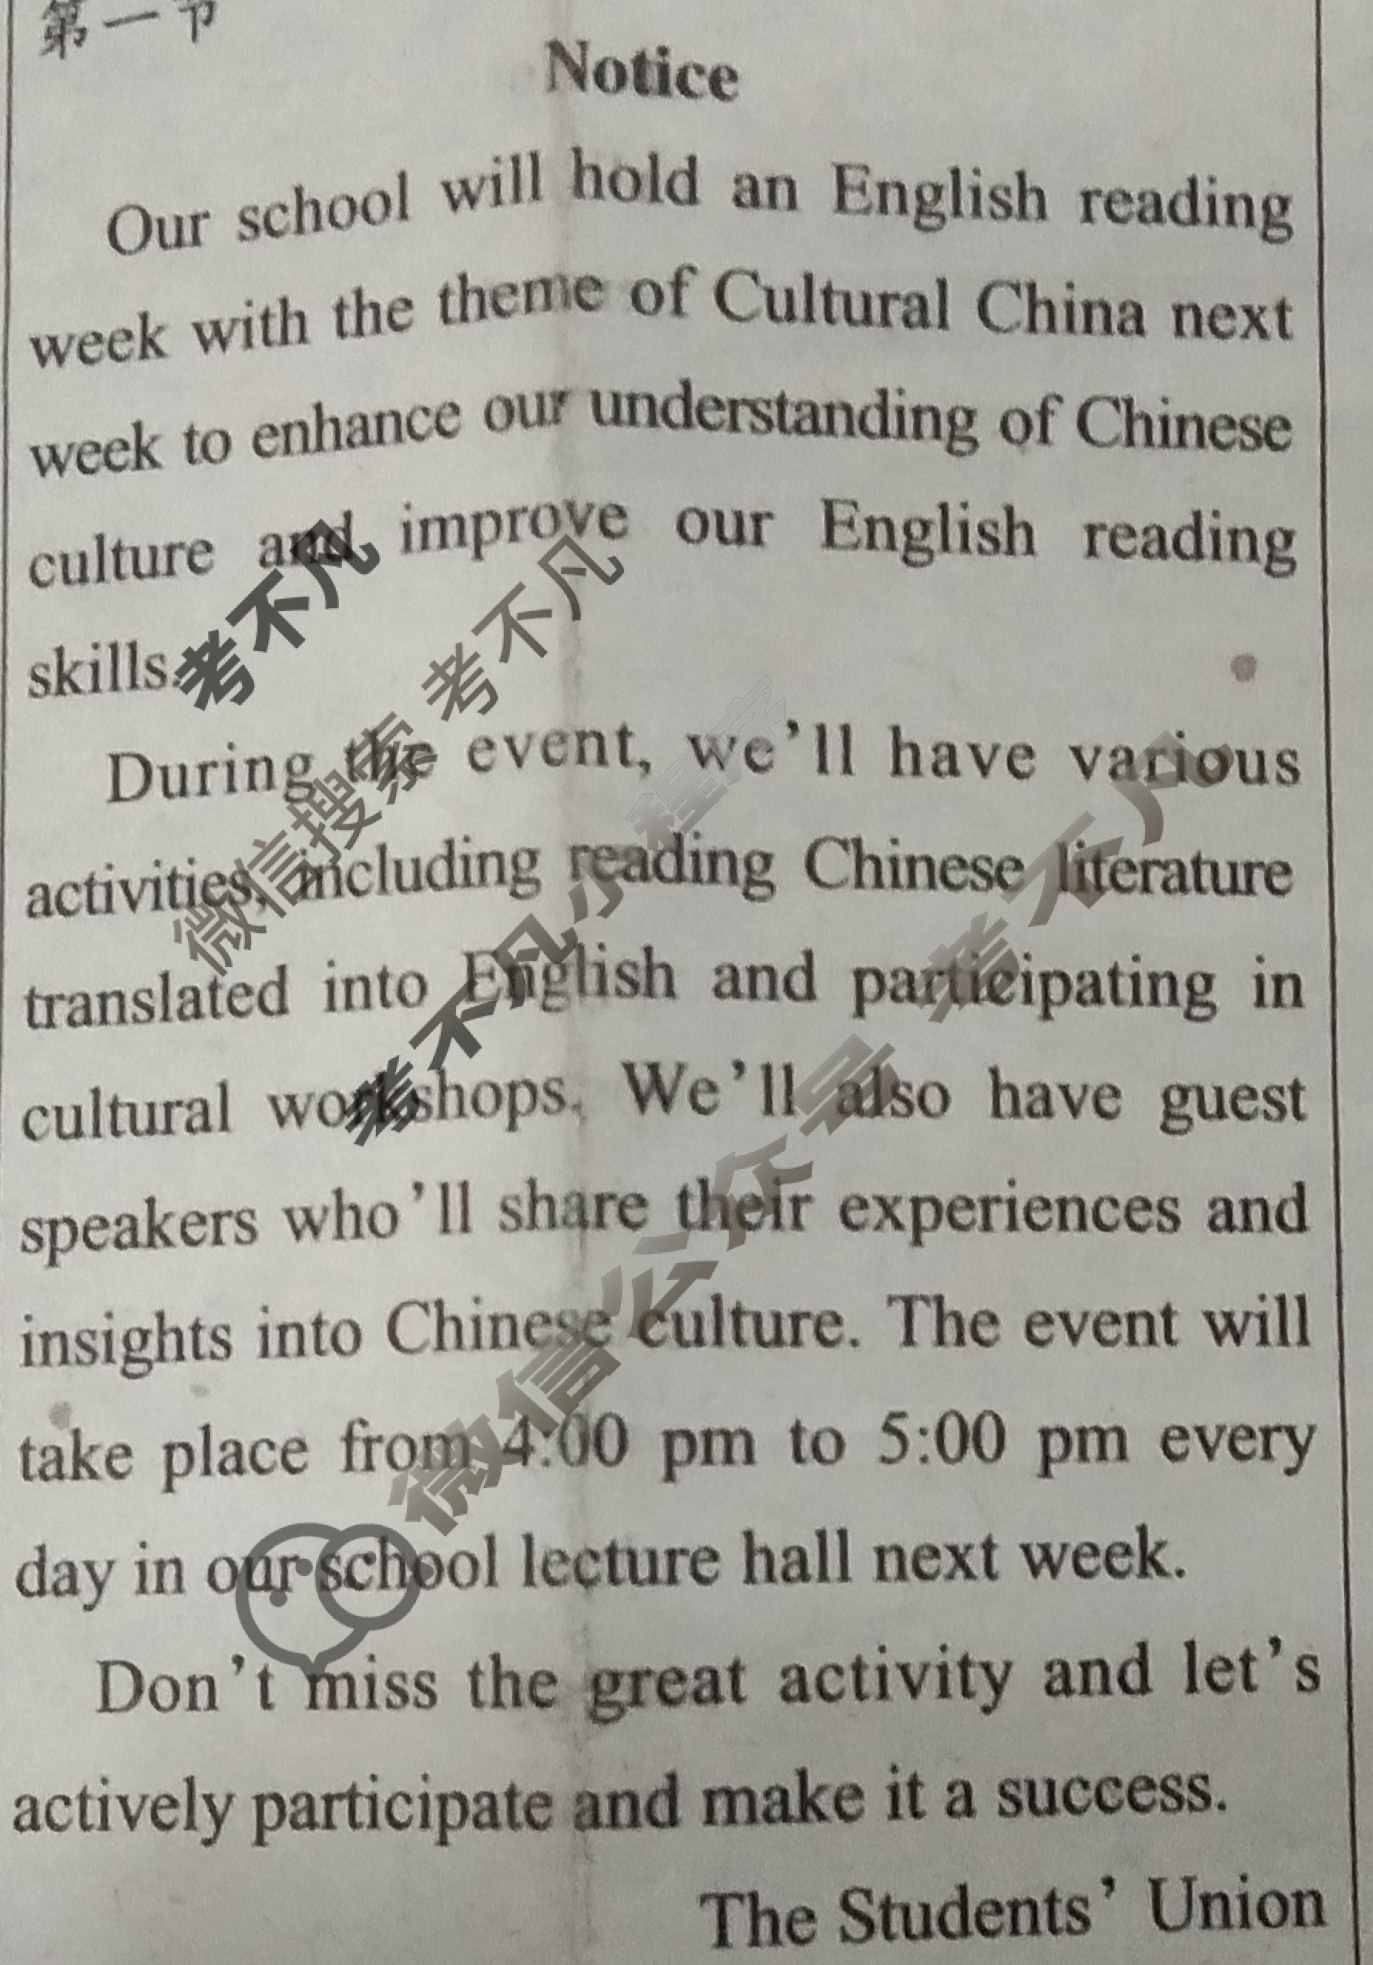 第一节
Notice
Our school will hold an English reading
week with the theme of Cultural China next
week to enhance our understanding of Chinese
culture and improve our English reading
skills.
During the event, we’ll have various
activities, including reading Chinese literature
translated into English and participating in
cultural workshops. We’ll also have guest
speakers who’ll share their experiences and
insights into Chinese culture. The event will
take place from 4:00 pm to 5:00 pm every
day in our school lecture hall next week.
Don’t miss the great activity and let’s
actively participate and make it a success.
The Students’ Union
考不凡
微信搜索 考不凡
考不凡小程序
微信公众号 考不凡